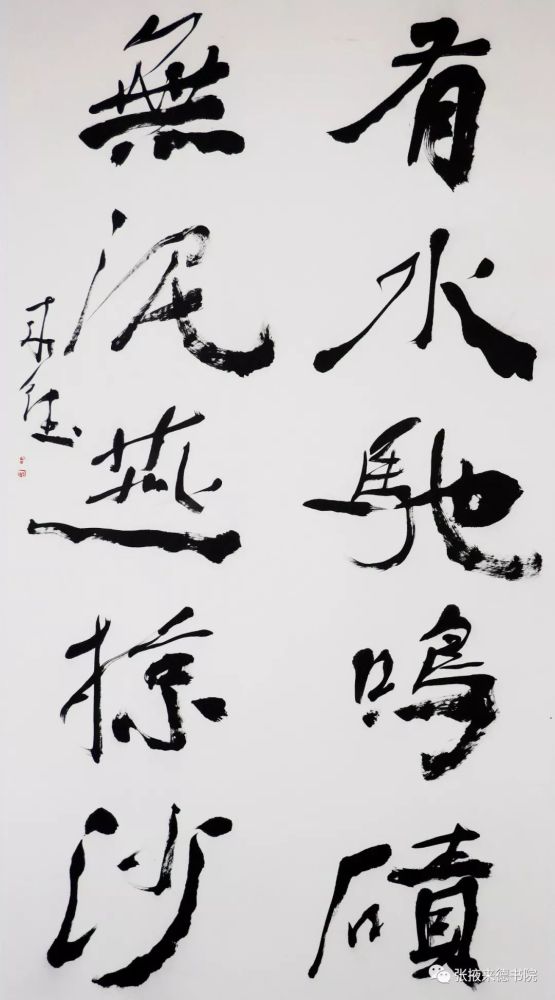 有水馳鳴磧
無泥燕掠沙
来德
张掖来德书院